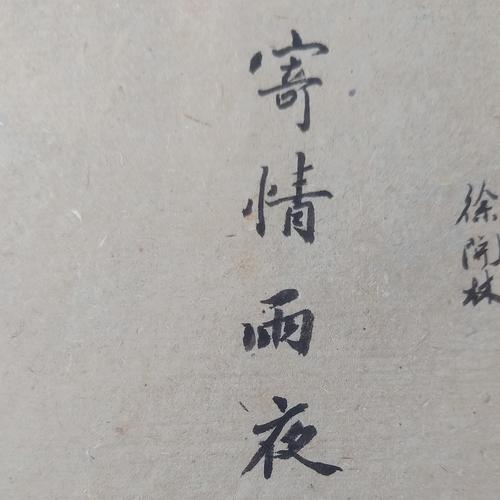 徐開林
寄情雨夜